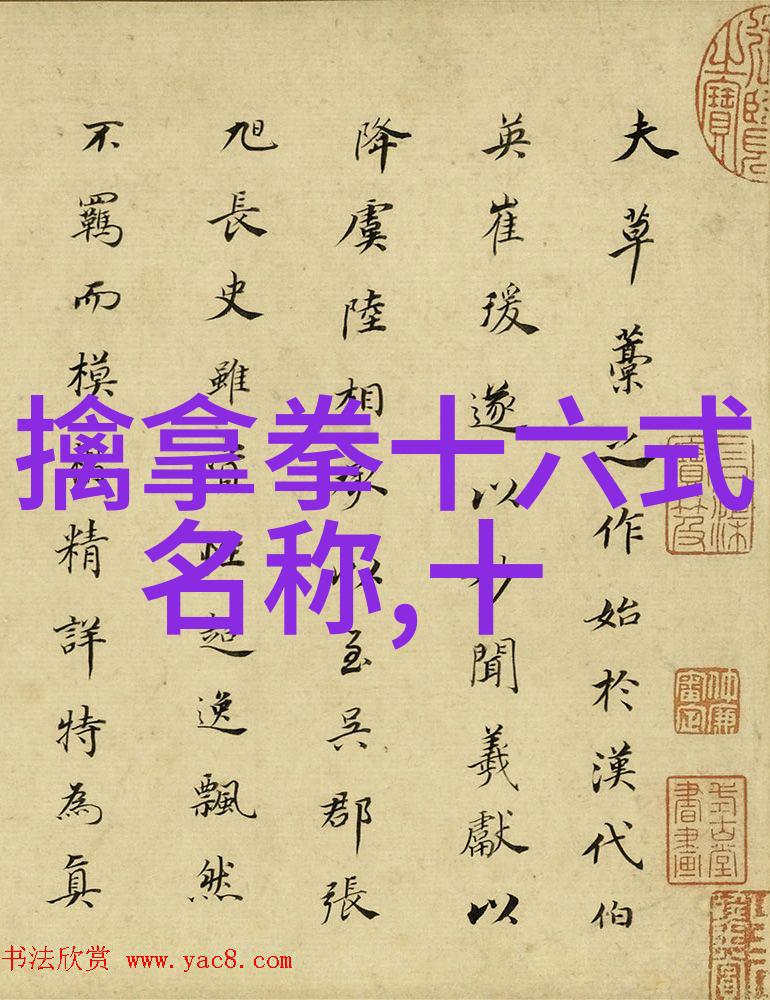 夫草藁之作始於漢代伯
英崔瑗遂以妙聞羲獻以
降虞陸相承以至吳郡張
旭長史雖性超逸飄然
不羈而模精詳特為真
擒拿拳十六式
名称,十
书法欣赏 www.yac8.com